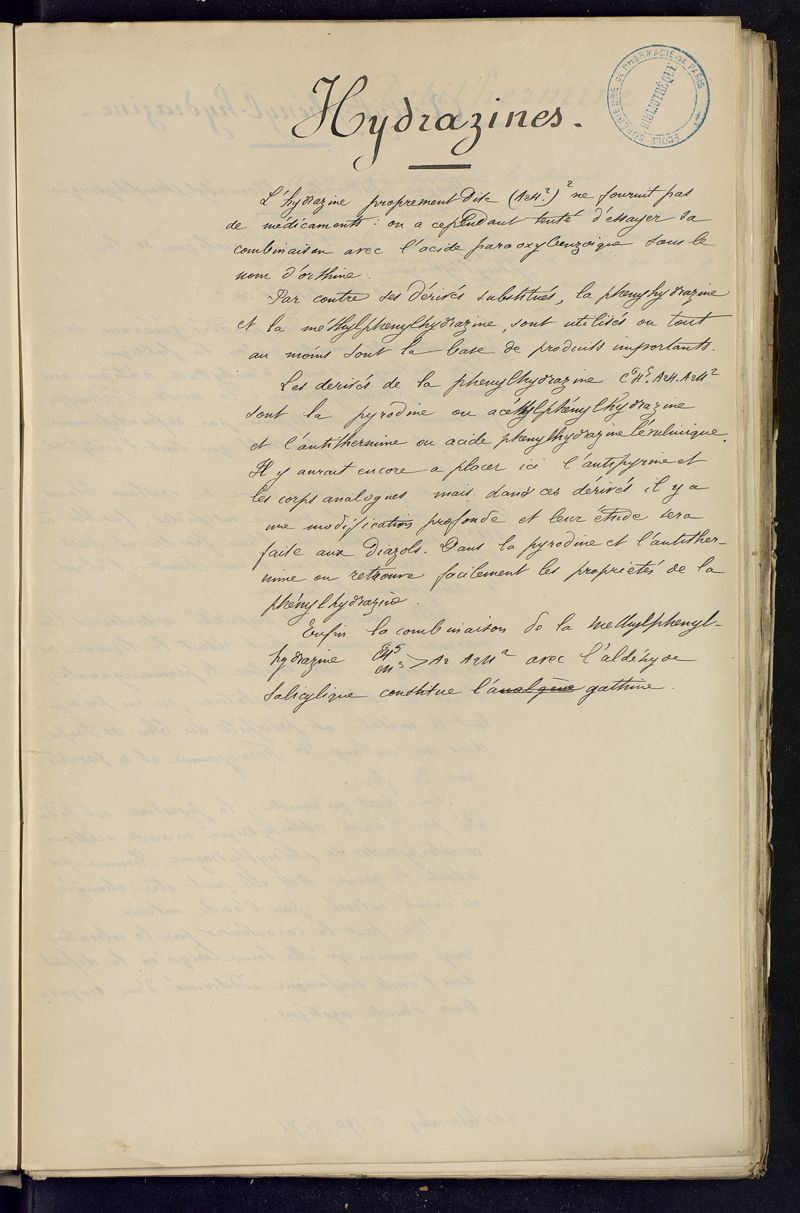 Hydrazines.
ÉCOLE SUPÉRIEURE DE PHARMACIE DE PARIS
BIBLIOTHÈQUE
L'hydrazine proprement dite (AzH²)² ne fournit pas
de médicaments : on a cependant tenté d'essayer sa
combinaison avec l'acide paraoxybenzoïque sous le
nom d'orthine.
Par contre ses dérivés substitués, la phénylhydrazine
et la méthylphénylhydrazine, sont utilisés ou tout
au moins sont la base de produits importants.
Les dérivés de la phénylhydrazine C⁶H⁵.AzH.AzH²
sont la pyrodine ou acétylphénylhydrazine
et l'antithermine ou acide phénylhydrazinelévulinique.
Il y aurait encore a placer ici l'antipyrine et
les corps analogues mais dans ces dérivés il y a
une modification profonde et leur étude sera
faite aux diazols. Dans la pyrodine et l'antither-
mine on retrouve facilement les propriétés de la
phénylhydrazine.
Enfin la combinaison de la méthylphényl-
hydrazine C⁶H⁵ CH³ > Az AzH² avec l'aldéhyde
salicylique constitue l'analgène gathine.